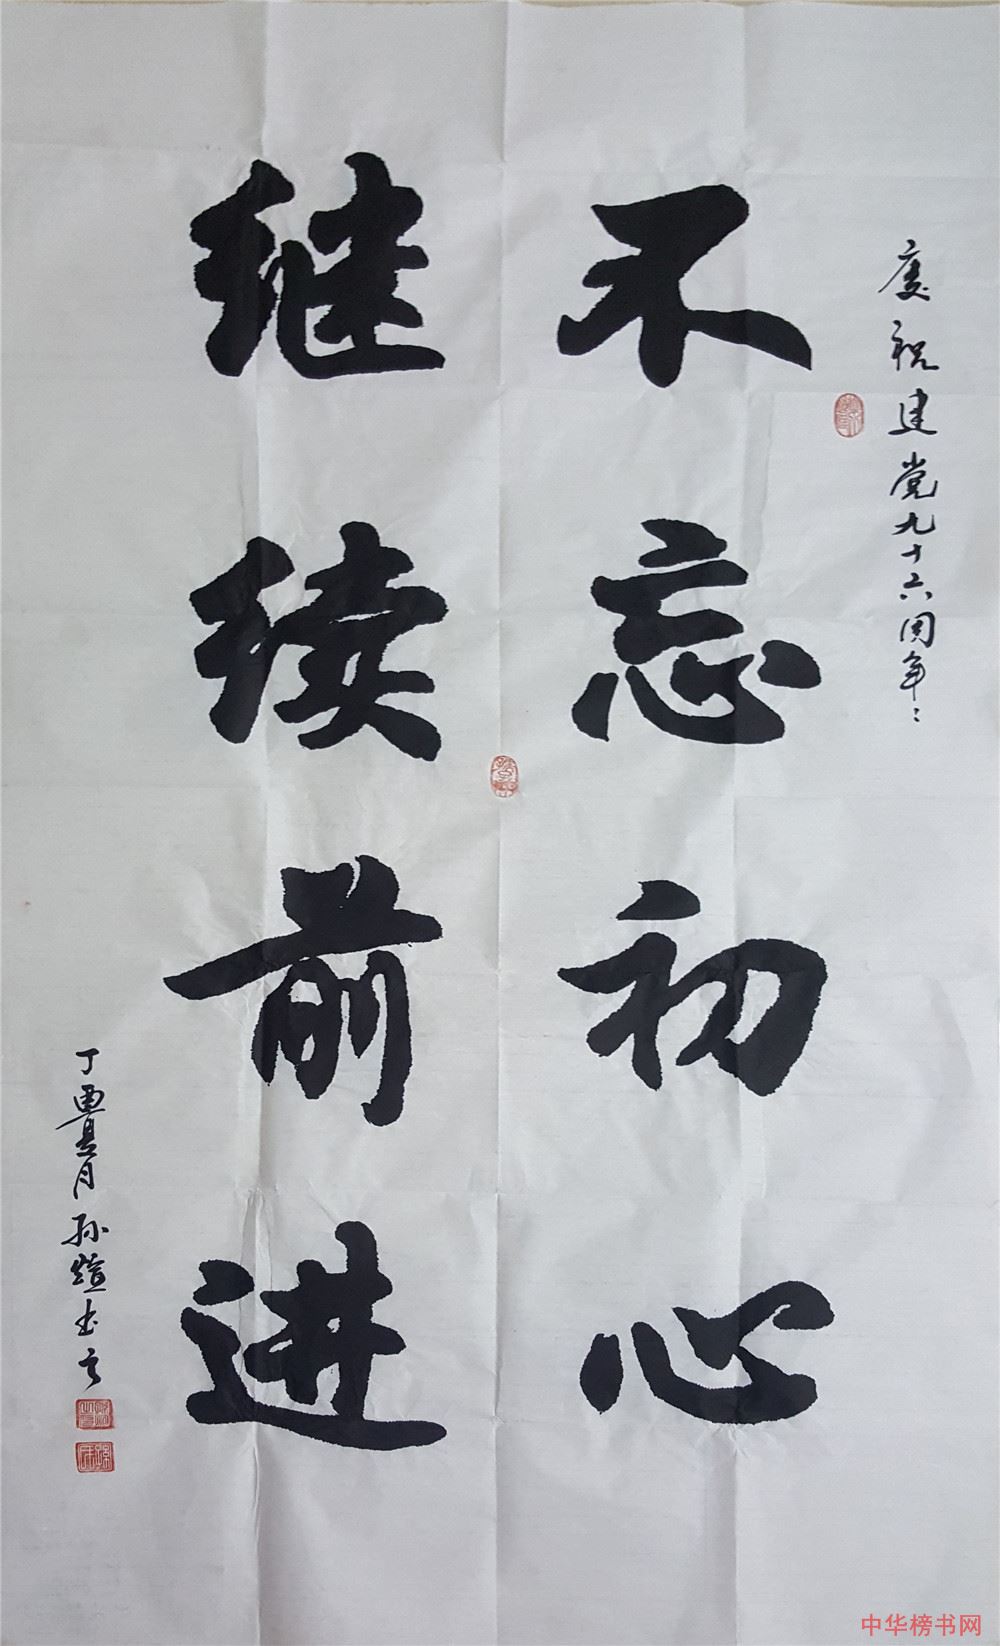 庆祝建党九十六周年
不忘初心
继续前进
丁酉夏月孙煊书
中华榜书网